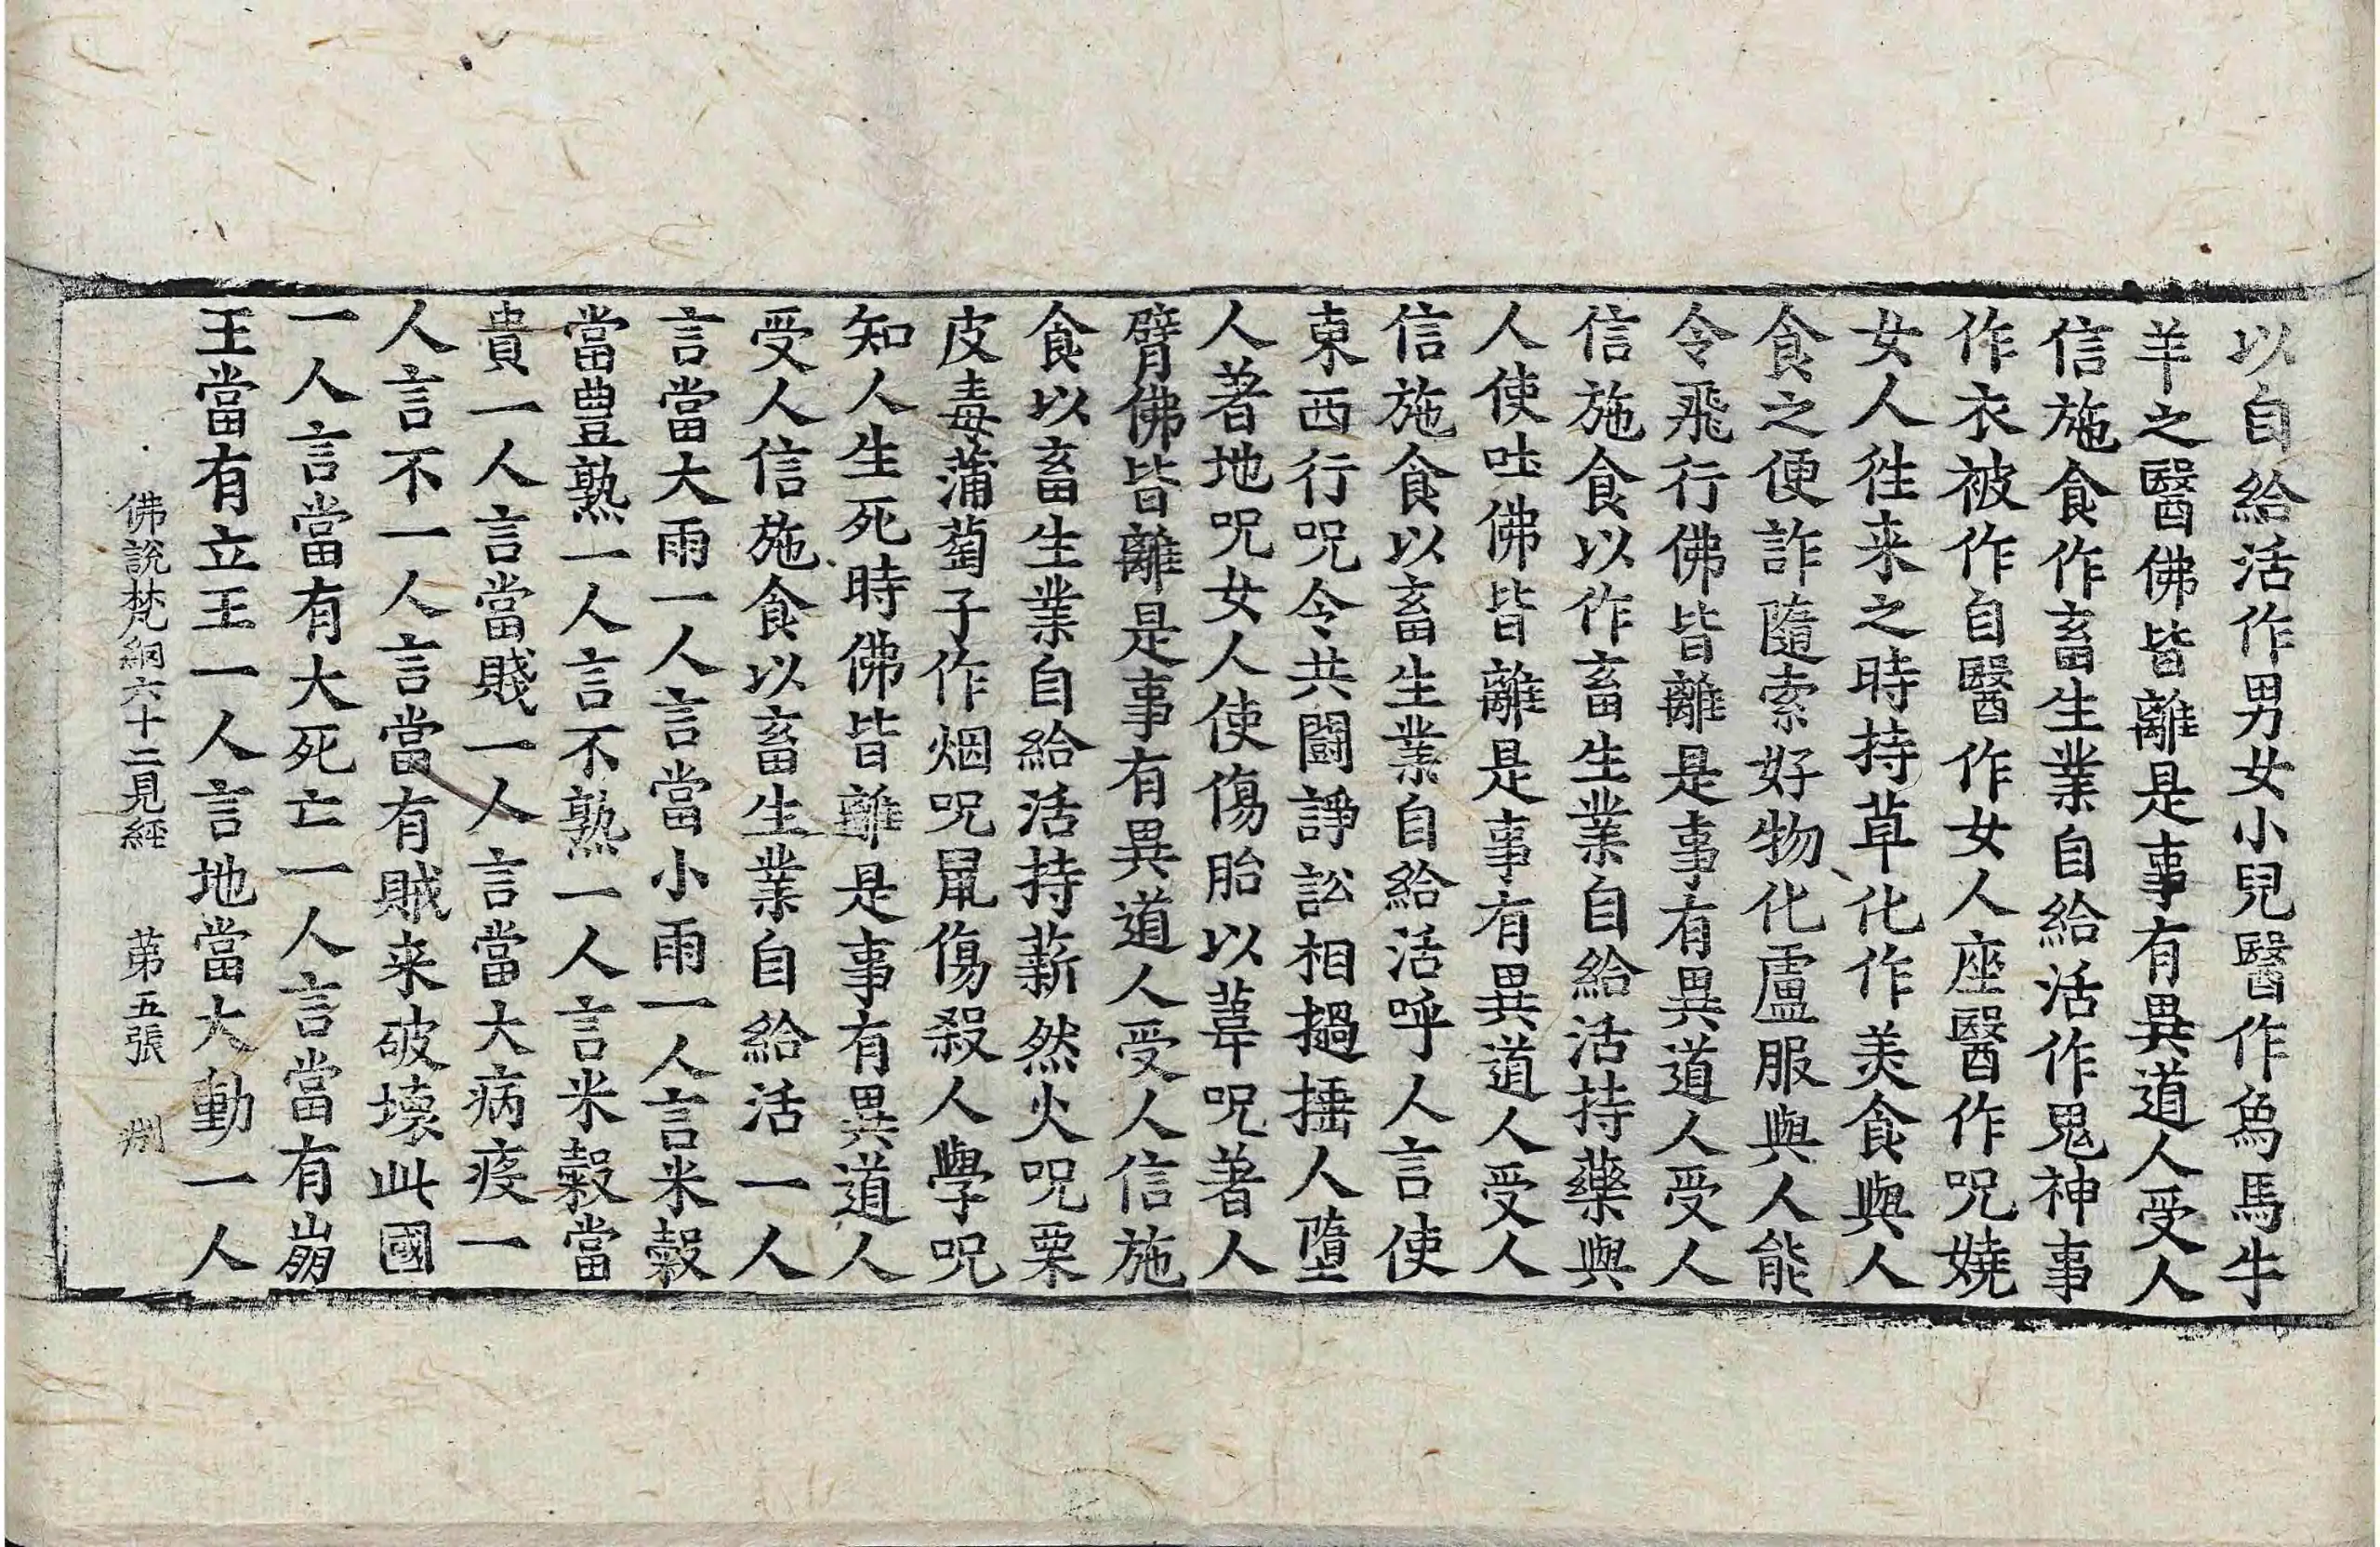 以自給活作男女小兒醫作爲馬牛
羊之醫佛皆離是事有異道人受人
信施食作畜生業自給活作鬼神事
作衣被作自醫作女人座醫作呪嬈
女人徃来之時持草化作美食與人
食之便詐隨索好物化盧服與人能
令飛行佛皆離是事有異道人受人
信施食以作畜生業自給活持藥與
人使吐佛皆離是事有異道人受人
信施食以畜生業自給活呼人言使
東西行呪令共鬪諍訟相撾捶人墮
人著地呪女人使傷胎以葦呪著人
臂佛皆離是事有異道人受人信施
食以畜生業自給活持薪然火呪栗
皮毒蒲萄子作烟呪鼠傷殺人學呪
知人生死時佛皆離是事有異道人
受人信施食以畜生業自給活一人
言當大雨一人言當小雨一人言米穀
當豊熟一人言不熟一人言米穀當
貴一人言當賤一人言當大病疫一
人言不一人言當有賊来破壞此國
一人言當有大死亡一人言當有崩
王當有立王一人言地當大動一人
佛說梵網六十二見經 苐五張